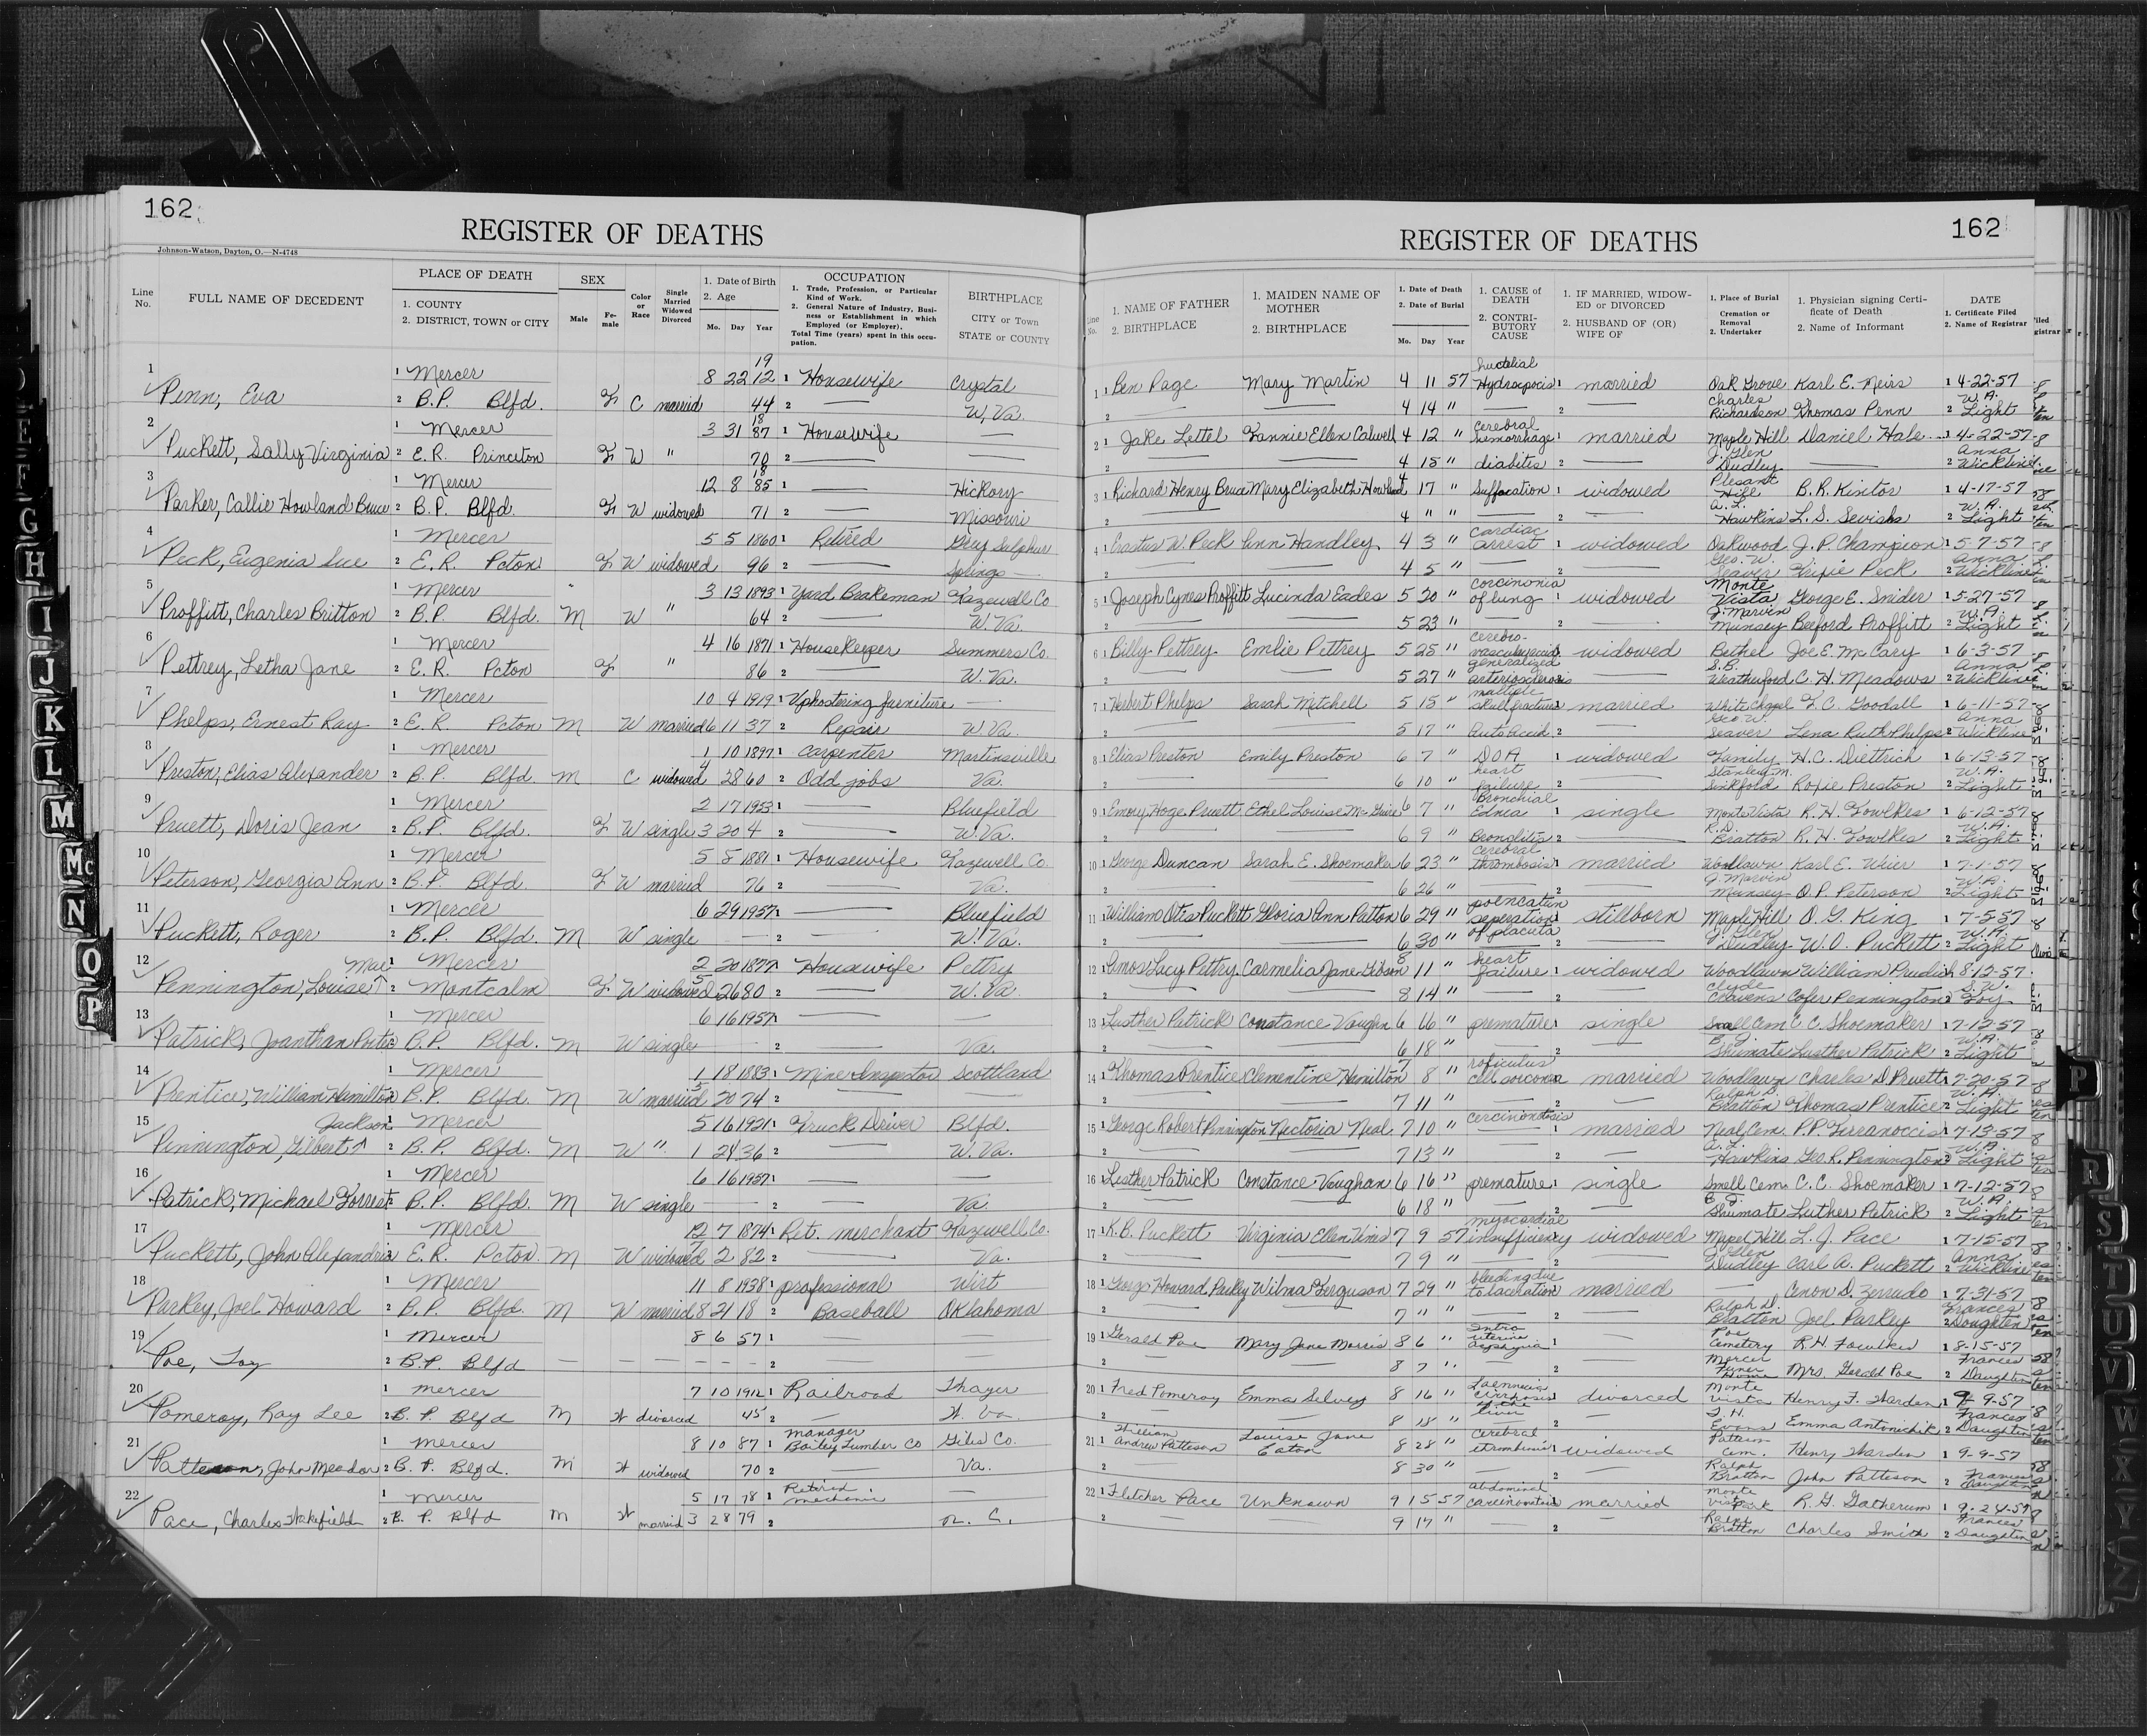 162
REGISTER OF DEATHS
Johnson-Watson, Dayton, O.—N-4748
Line No.
FULL NAME OF DECEDENT
PLACE OF DEATH
1. COUNTY
2. DISTRICT, TOWN or CITY
SEX
Male
Fe-male
Color or Race
Single Married Widowed Divorced
1. Date of Birth
2. Age
Mo. Day Year
OCCUPATION
1. Trade, Profession, or Particular Kind of Work.
2. General Nature of Industry, Busi-ness or Establishment in which Employed (or Employer).
Total Time (years) spent in this occu-pation.
BIRTHPLACE
CITY or Town
STATE or COUNTY
1 Penn, Eva
1 Mercer 8 22 1912 1 Housewife Crystal
2 B.P. Blfd. F C married 44 2 — W. Va.
2 Puckett, Sally Virginia
1 Mercer 3 31 1887 1 Housewife —
2 E.R. Princeton F W " 70 2 —
3 Parker, Callie Howland Bruce
1 Mercer 12 8 1885 1 — Hickory
2 B.P. Blfd. F W widowed 71 2 — Missouri
4 Peck, Eugenia Sue
1 Mercer 5 5 1860 1 Retired Grey Sulphur
2 E.R. Pcton F W widowed 96 2 — Springs
5 Proffitt, Charles Britton
1 Mercer 3 13 1893 1 Yard Brakeman Tazewell Co
2 B.P. Blfd. M W " 64 2 — W. Va.
6 Pettrey, Letha Jane
1 Mercer 4 16 1871 1 Housekeeper Summers Co.
2 E.R. Pcton F " 86 2 — W. Va.
7 Phelps, Ernest Ray
1 Mercer 10 4 1919 1 Uphostering furniture —
2 E.R. Pcton M W married 6 11 37 2 Repair W. Va.
8 Preston, Elias Alexander
1 Mercer 1 10 1897 1 Carpenter Martinsville
2 B.P. Blfd. M C widowed 4 28 60 2 Odd jobs Va.
9 Pruett, Doris Jean
1 Mercer 2 17 1953 1 — Bluefield
2 B.P. Blfd. F W single 3 20 4 2 — W. Va.
10 Peterson, Georgia Ann
1 Mercer 5 8 1881 1 Housewife Tazewell Co.
2 B.P. Blfd. F W married 76 2 — Va.
11 Puckett, Roger
1 Mercer 6 29 1957 1 — Bluefield
2 B.P. Blfd. M W single — 2 — W. Va.
12 Pennington, Louise Mae
1 Mercer 2 20 1877 1 Housewife Pettry
2 Montcalm F W widowed 5 26 80 2 — W. Va.
13 Patrick, Joanthan Porter
1 Mercer 6 16 1957 1 — —
2 B.P. Blfd. M W single 2 — Va.
14 Prentice, William Hamilton
1 Mercer 1 18 1883 1 Mine Inspector Scottland
2 B.P. Blfd. M W married 5 20 74 2 — —
15 Pennington, Gilbert Jackson
1 Mercer 5 16 1921 1 Truck Driver Blfd.
2 B.P. Blfd. M W " 1 24 36 2 — W. Va.
16 Patrick, Michael Forrest
1 Mercer 6 16 1957 1 — —
2 B.P. Blfd. M W single — 2 — Va.
17 Puckett, John Alexandria
1 Mercer 12 7 1874 1 Ret. merchant Tazewell Co.
2 E.R. Pcton. M W widowed 7 2 82 2 — Va.
18 Parkey, Joel Howard
1 Mercer 11 8 1938 1 professional Wist
2 B.P. Blfd. M W married 8 21 18 2 Baseball Oklahoma
19 Poe, Toy
1 Mercer 8 6 57 1 — —
2 B.P. Blfd — — — — — — 2 — —
20 Pomeroy, Ray Lee
1 Mercer 7 10 1912 1 Railroad Thayer
2 B.P. Blfd M W divorced 45 2 — W. Va
21 Patteson, John Meador
1 Mercer 8 10 87 1 manager Bailey Lumber Co Giles Co.
2 B.P. Blfd. M W widowed 70 2 — Va.
22 Pace, Charles Wakefield
1 Mercer 5 17 78 1 Retired mechanic —
2 B.P. Blfd M W married 3 28 79 2 N. C.
REGISTER OF DEATHS
162
Line No.
1. NAME OF FATHER
2. BIRTHPLACE
1. MAIDEN NAME OF MOTHER
2. BIRTHPLACE
1. Date of Death
2. Date of Burial
Mo. Day Year
1. CAUSE of DEATH
2. CONTRI-BUTORY CAUSE
1. IF MARRIED, WIDOW-ED or DIVORCED
2. HUSBAND OF (OR) WIFE OF
1. Place of Burial Cremation or Removal
2. Undertaker
1. Physician signing Certi-ficate of Death
2. Name of Informant
DATE
1. Certificate Filed
2. Name of Registrar
1 1 Ben Page Mary Martin 4 11 57 1 married Oak Grove Karl E. Weirs 1 4-22-57
2 — — 4 14 " — 2 — Charles Richardson Thomas Penn 2 W.A. Light
2 1 Jake Lettel Fannie Ellen Calwell 4 12 " cerebral hemorrhage 1 married Maple Hill Daniel Hale 1 4-22-57
2 — — 4 15 " diabites 2 — J. Glen Dudley — 2 Anna Wickline
3 1 Richard Henry Bruce Mary Elizabeth Howland 4 17 " Suffocation 1 widowed Plesant Hill B.R. Kintor 1 4-17-57
2 — 4 " " — 2 — A.L. Hawkins L.S. 2 W.A. Light
4 1 Erastus W. Peck Ann Handley 4 3 " cardiac arrest 1 widowed Oakwood J.P. Champion 1 5-7-57
2 — — 4 5 " — 2 — Geo. W. Seaver Trixie Peck 2 Anna Wickline
5 1 Joseph Cynes Proffitt Lucinda Eades 5 20 " corcinonia of lung 1 widowed Monte Vista George E. Snider 1 5-27-57
2 — — 5 23 " — 2 — J. Marvin Munsey Beeford Proffitt 2 W.A. Light
6 1 Billy Pettrey Emlie Pettrey 5 25 " cerebro-vascular accid. 1 widowed Bethel Joe E. McCary 1 6-3-57
2 — — 5 27 " generalized arteriosclerosis — S.B. Weatherford C.H. Meadows 2 Anna Wickline
7 1 Herbert Phelps Sarah Mitchell 5 15 " multiple skull fracture 1 married White Chapel F.C. Goodall 1 6-11-57
2 — — 5 17 " Auto Accid. 2 — Geo W. Seaver Lena Ruth Phelps 2 Anna Wickline
8 1 Elias Preston Emily Preston 6 7 " DOA 1 widowed Family H.C. Diettrich 1 6-13-57
2 — — 6 10 " heart failure 2 — Stanley M. Sinkfold Rosie Preston 2 W.A. Light
9 1 Emory Hoge Pruett Ethel Louise McGuire 6 7 " Bronchial Ednia 1 single Monte Vista R.H. Fowlkes 1 6-12-57
2 — — 6 9 " 2 — R.D. Bratton R.H. Fowlkes 2 W.A. Light
10 1 George Duncan Sarah E. Shoemaker 6 23 " cerebral thrombosis 1 married Woodlawn Karl E. Weir 1 7-1-57
2 — — 6 26 " — 2 — J. Marvin Munsey O.P. Peterson 2 W.A. Light
11 1 William Otis Puckett Gloria Ann Patton 6 29 " seperation of placuta 1 stillborn Maple Hill O.G. King 1 7-5-57
2 — — 6 30 " 2 — J. Glen Dudley W.O. Puckett 2 W.A. Light
12 1 Amos Lacy Pettry Carmelia Jane Gibson 8 11 " heart failure 1 widowed Woodlawn William Prudich 8-12-57
2 — — 8 14 " — 2 — Clyde Cravens Cofer Pennington 2 S.W. Foy
13 1 Lusther Patrick Constance Vaughn 6 16 " premature 1 single Snell Cem C.C. Shoemaker 1 7-12-57
2 — — 6 18 " — 2 — B.J. Shumate Lusther Patrick 2 W.A. Light
14 1 Thomas Prentice Clementine Hamilton 7 8 " married Woodlawn Charles D Pruett 1 7-20-57
2 — — 7 11 " — 2 — Ralph D. Bratton Thomas Prentice 2 W.A. Light
15 1 George Robert Pennington Nectoria Neal 7 10 " cercinonotosis 1 married Neal Cem. P.P. 1 7-13-57
2 — — 7 13 " 2 — A.L. Hawkins Geo. R. Pennington 2 W.A. Light
16 1 Lesther Patrick Constance Vaughan 6 16 " premature 1 single Smell Cem. C.C. Shoemaker 1 7-12-57
2 — — 6 18 " — 2 — B J. Shumate Luther Patrick 2 W.A. Light
17 1 K.B. Puckett Virginia Ellen 7 9 57 myocardial insufficieny widowed Mapel Hill L.J. Pace 1 7-15-57
2 — — 7 9 " — 2 — J. Glen Dudley Carl A. Puckett 2 Anna Wickline
18 1 George Howard Parkey Wilma Ferguson 7 29 " bleeding due to laceration married — Cenon D. Zerrudo 1 7-31-57
2 — — 7 " " — 2 — Ralph D. Bratton Joel Parkey 2 Frances Doughten
19 1 Gerald Poe Mary Jane Morris 8 6 " Intra uterine asphyxia 1 — Poe Cemetery R.H. Fowlkes 1 8-15-57
2 — — 8 7 " 2 — Mercer Funer Home Mrs. Gerald Poe 2 Frances Daughten
20 1 Fred Pomeroy Emma Selvey 8 16 " Laennecia cirrhosis of the liver divorced Monte Vista Henry F. Warden 1 9-9-57
2 — — 8 18 " 2 — T.H. Evans Emma Antonichik 2 Frances Daughten
21 1 William Andrew Patteson Louise Jane Eaton 8 28 " Cerebral widowed Patteson Cem. Henry Warden 1 9-9-57
2 — — 8 30 " 2 — Ralph Bratton John Patteson 2 Frances Daughten
22 1 Fletcher Pace Unknown 9 15 57 abdominal married Monte Vista Park R.G. Gatherum 1 9-24-57
2 — — 9 17 " — 2 — Ralph Bratton Charles Smith 2 Frances Daughten
G
H
I
J
K
L
M
Mc
N
O
P
P
R
S
T
U
V
W
X
Y
Z